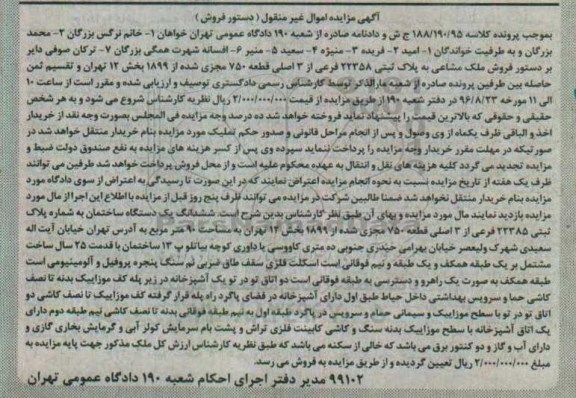 آگهی مزایده اموال غیر منقول ( دستور فروش )
بموجب پرونده کلاسه ۱۸۸/۱۹۰/۹۵ ج ش و دادنامه صادره از شعبه ۱۹۰ دادگاه عمومی تهران خواهان ۱- خانم نرگس بزرگان ۲- محمد
بزرگان و به طرفیت خواندگان ۱- امید ۲- فریده ۳- منیژه ۴- سعید ۵- منیر ۶- افسانه شهرت همگی بزرگان ۷- ترکان صوفی دایر
بر دستور فروش ملک مشاعی به پلاک ثبتی ۲۲۳۵۸ فرعی از ۳ اصلی قطعه ۷۵۰ مجزی شده از ۱۸۹۹ بخش ۱۲ تهران و تقسیم ثمن
حاصله بین طرفین پرونده صادره از شعبه مارالذکر توسط کارشناس رسمی دادگستری توصیف و ارزیابی شده و مقرر است از ساعت ۱۰
الی ۱۱ مورخه ۹۶/۸/۲۳ در دفتر شعبه ۱۹۰ از طریق مزایده از قیمت ۲/۰۰۰/۰۰۰/۰۰۰ ریال نظریه کارشناس شروع می شود و به هر شخص
حقیقی و حقوقی که بالاترین قیمت را پیشنهاد نماید فروخته خواهد شد ده درصد وجه مزایده فی المجلس بصورت وجه نقد از خریدار
اخذ و الباقی ظرف یکماه از وی وصول و پس از انجام مراحل قانونی و صدور حکم تملیک مورد مزایده بنام خریدار منتقل خواهد شد در
صورتیکه در مهلت مقرر خریدار وجه مزایده را پرداخت ننماید سپرده وی پس از کسر هزینه های مزایده به نفع صندوق دولت ضبط و
مزایده تجدید می گردد کلیه هزینه های نقل و انتقال به عهده محکوم علیه است و از محل فروش پرداخت خواهد شد طرفین می توانند
ظرف یک هفته از تاریخ مزایده نسبت به نحوه انجام مزایده اعتراض نمایند که در این صورت تا رسیدگی به اعتراض از سوی دادگاه مورد
مزایده بنام خریدار منتقل نخواهد شد ضمنا طالبین شرکت در مزایده می توانند ظرف پنج روز قبل از مزایده با اطلاع این اجرا از مال مورد
مزایده بازدید نمایند مال مورد مزایده و بهای آن طبق نظر کارشناس بدین شرح است ششدانگ یک دستگاه ساختمان به شماره پلاک
ثبتی ۲۲۳۸۵ فرعی از ۳ اصلی قطعه ۷۵۰ مجزی شده از ۱۸۹۹ بخش ۱۲ تهران به مساحت ۹۰ متر مربع به آدرس تهران خیابان آیت اله
سعیدی شهرک ولیعصر خیابان بهرامی حیدری جنوبی ده متری کاووسی یا داوری کوچه بیاتلو پ ۱۳ ساختمان با قدمت ۲۵ سال ساخت
مشتمل بر یک طبقه همکف و یک طبقه و نیم فوقانی است اسکلت فلزی سقف طاق ضربی نم سنگ پنجره پروفیل و آلومینیومی است
طبقه همکف به صورت یک راهرو و دسترسی به طبقه فوقانی است دو اتاق تو در تو یک آشپزخانه در زیر پله کف موزاییک بدنه تا نصف
کاشی حما و سرویس بهداشتی داخل حیاط طبق اول دارای آشپزخانه در فضای پاگرد راه پله قرار گرفته کف موزاییک تا نصف کاشی دو
اتاق تو در تو با سطح موزاییک و سیمانی حمام و سرویس در پاگرد طبقه اول به نیم طبقه فوقانی بدنه تا نصف کاشی نیم طبقه دوم دارای
یک اتاق آشپزخانه با سطح موزاییک بدنه سنگ و کاشی کابینت فلزی تراش و پشت بام سرمایش کولر آبی و گرمایش بخاری گازی و
دارای آب و گاز و دو کنتور برق می باشد که خالی از سکنه می باشد که طبق نظریه کارشناس ارزش کل ملک مذکور جهت پایه مزایده به
مبلغ ۲/۰۰۰/۰۰۰/۰۰۰ ریال تعیین گردیده و از طریق مزایده به فروش می رسد.
۹۹۱۰۲ مدیر دفتر اجرای احکام شعبه ۱۹۰ دادگاه عمومی تهران